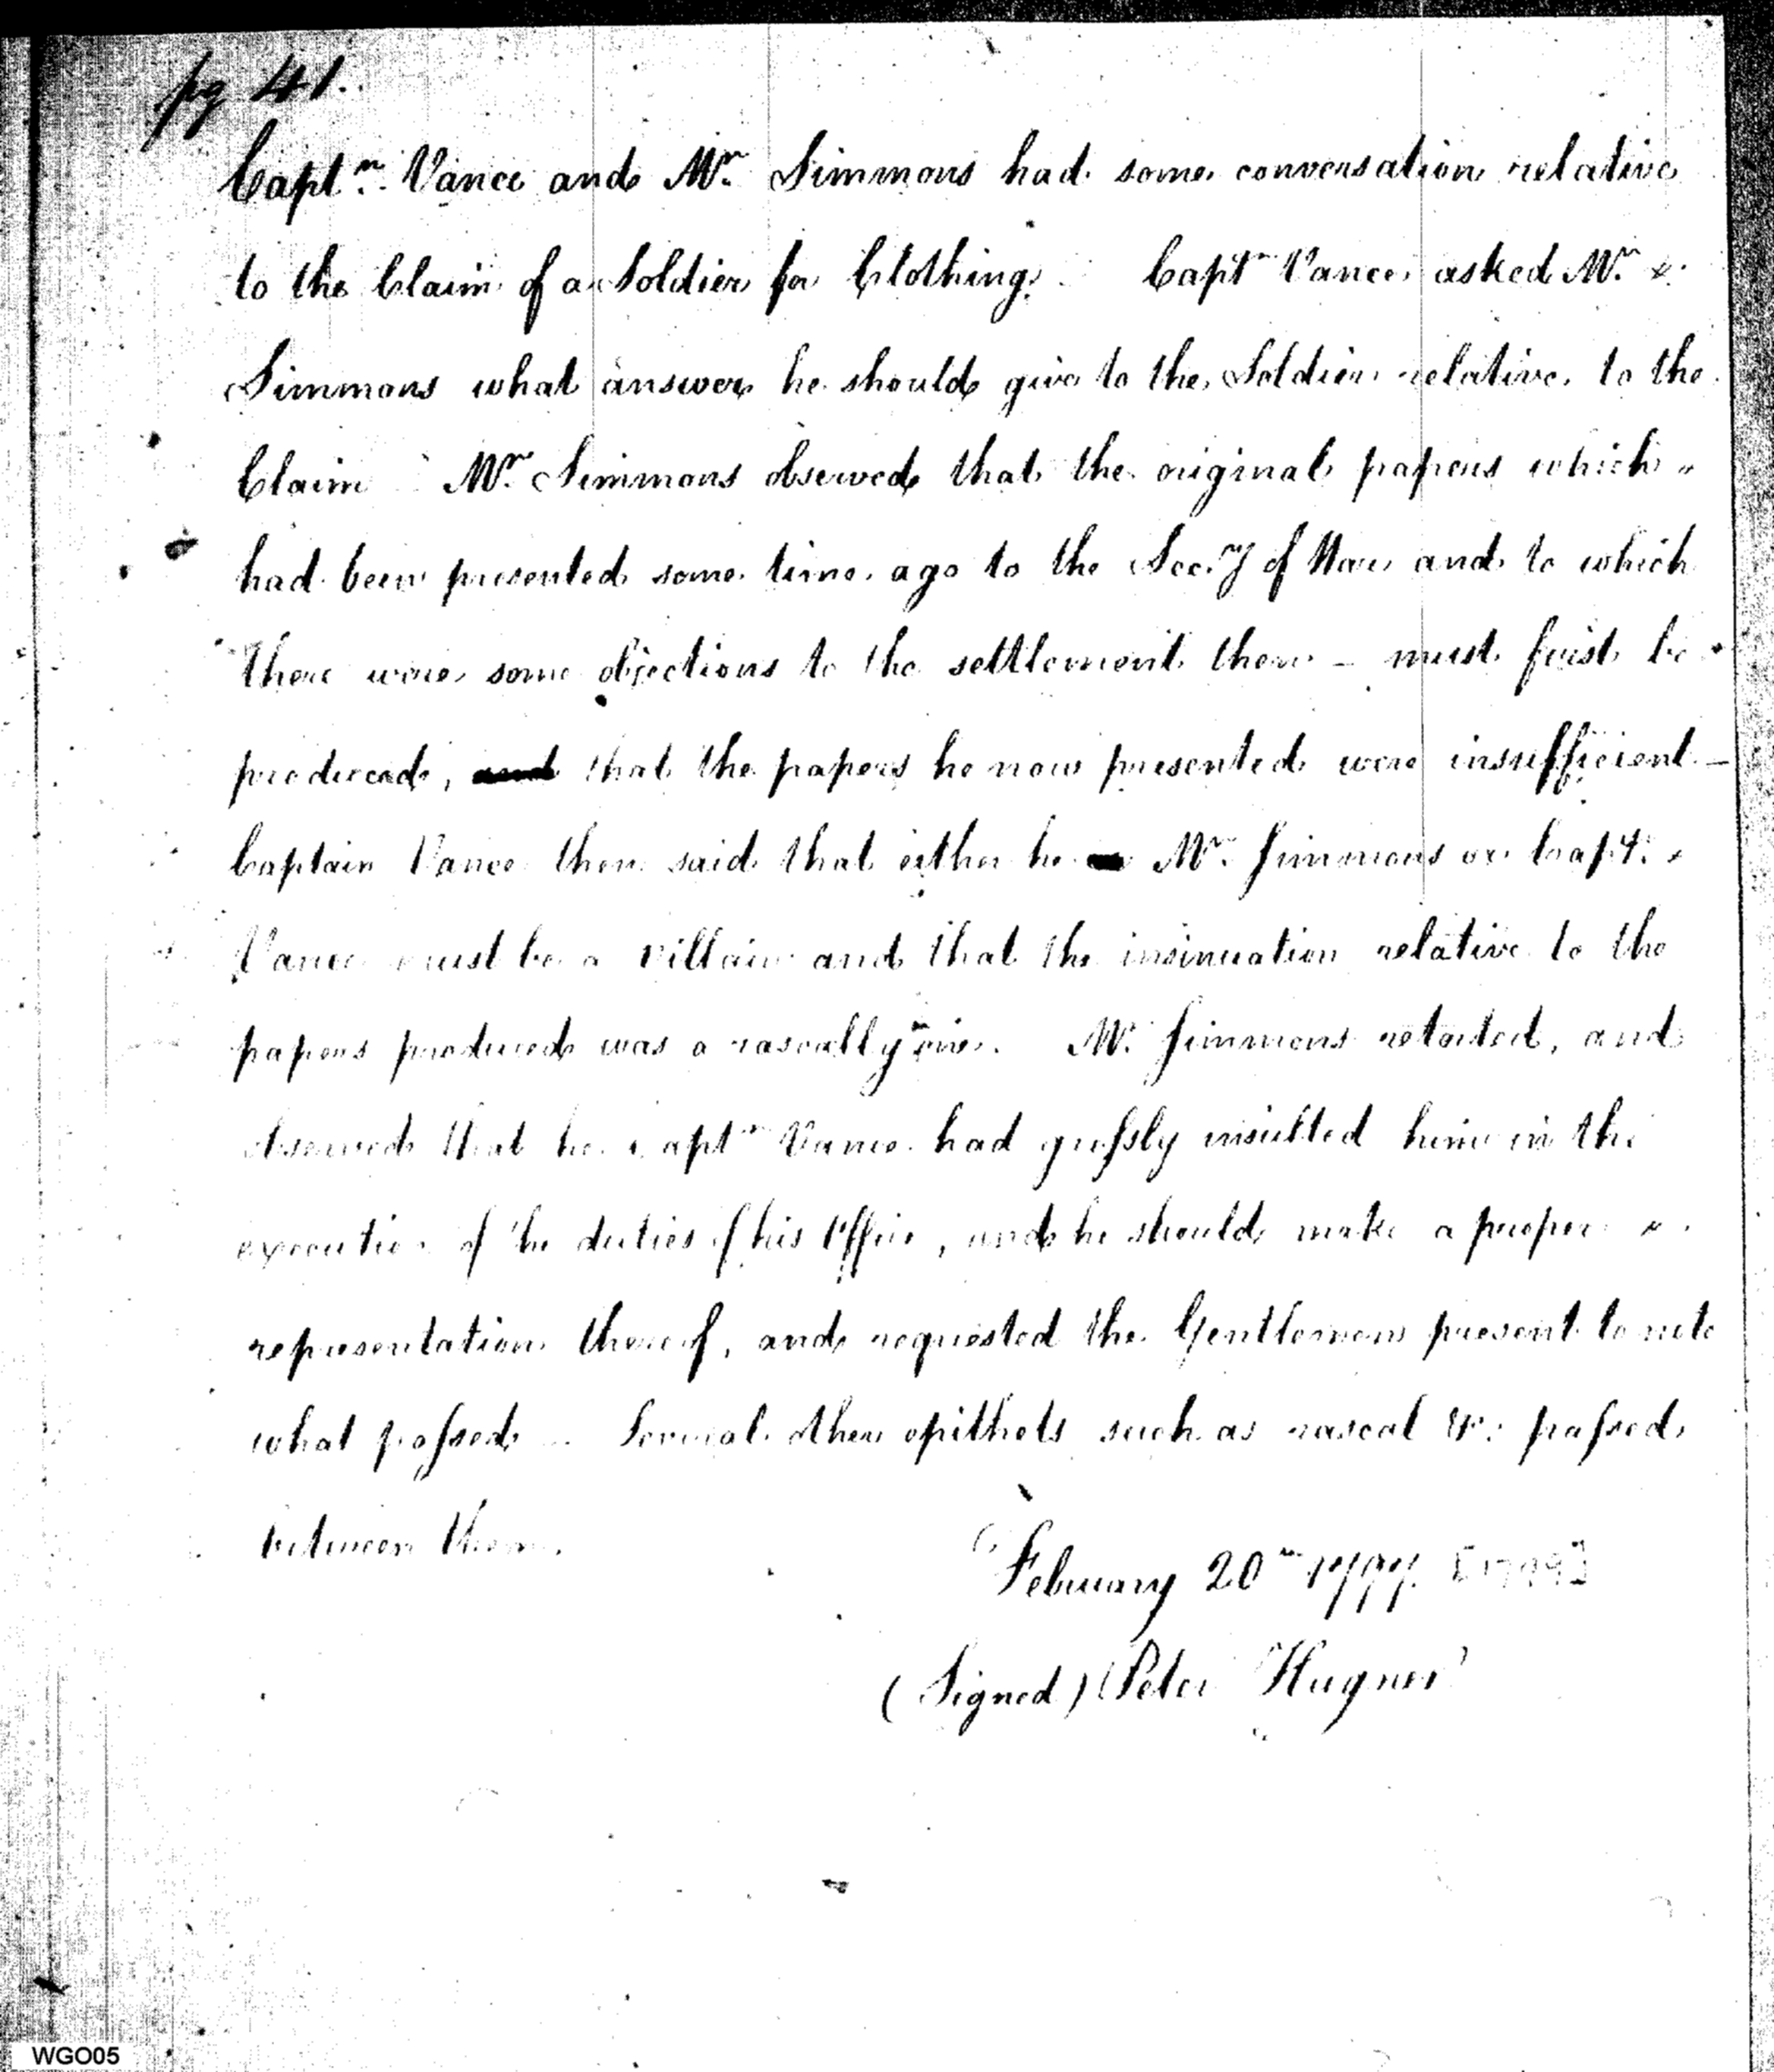 pg 41.
Captn. Vance and Mr. Simmons had some conversation relative
to the Claim of a Soldier for Clothing. Captn Vance asked Mr.
Simmons what answer he should give to the Soldier relative to the
Claim Mr. Simmons observed that the original papers which
had been presented some time ago to the Secry of War and to which
there were some objections to the settlement then – must first be
produced, and that the papers he now presented were insufficient –
Captain Vance then said that either he Mr. Simmons or Capt.
Vance must be a villain and that the insinuation relative to the
papers produced was a rascally one. Mr. Simmons retorted, and
observed that he Captn Vance had grossly insulted him in the
execution of the duties of his Office, and he should make a proper
representation thereof, and requested the Gentlemen present to note
what passed – Several other epithets such as rascal &c. passed
between them.
February 20th 1799. [1799]
(Signed) Peter Hagner
WGO05